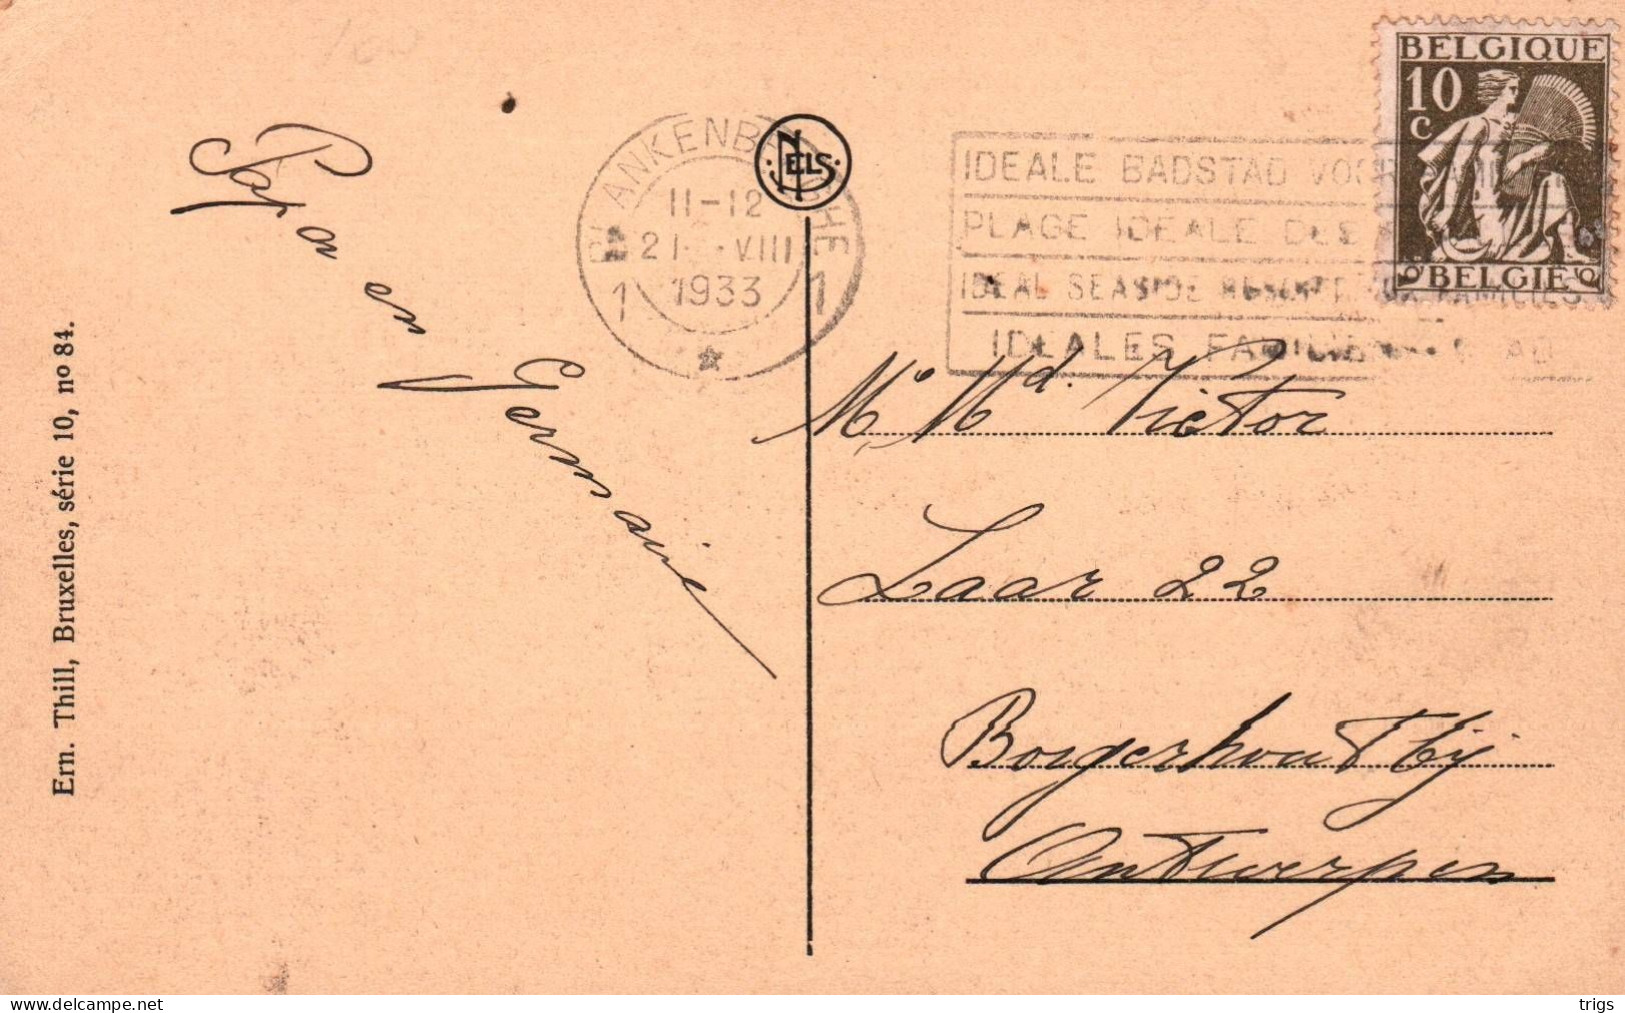 Papa en Germaine
Ern. Thill, Bruxelles, série 10, no 84.
BLANKENBERGHE
11-12
21 VIII
1933
1 1
NELS
IDEALE BADSTAD VOOR
PLAGE IDEALE DES
IDEAL SEASIDE RESORT FAMILIES
IDEALES FAMILIEN BAD
BELGIQUE
10
C
BELGIË
Mr Md. Victor
Laar 22
Borgerhout bij
Antwerpen
trigs
delcampe.net